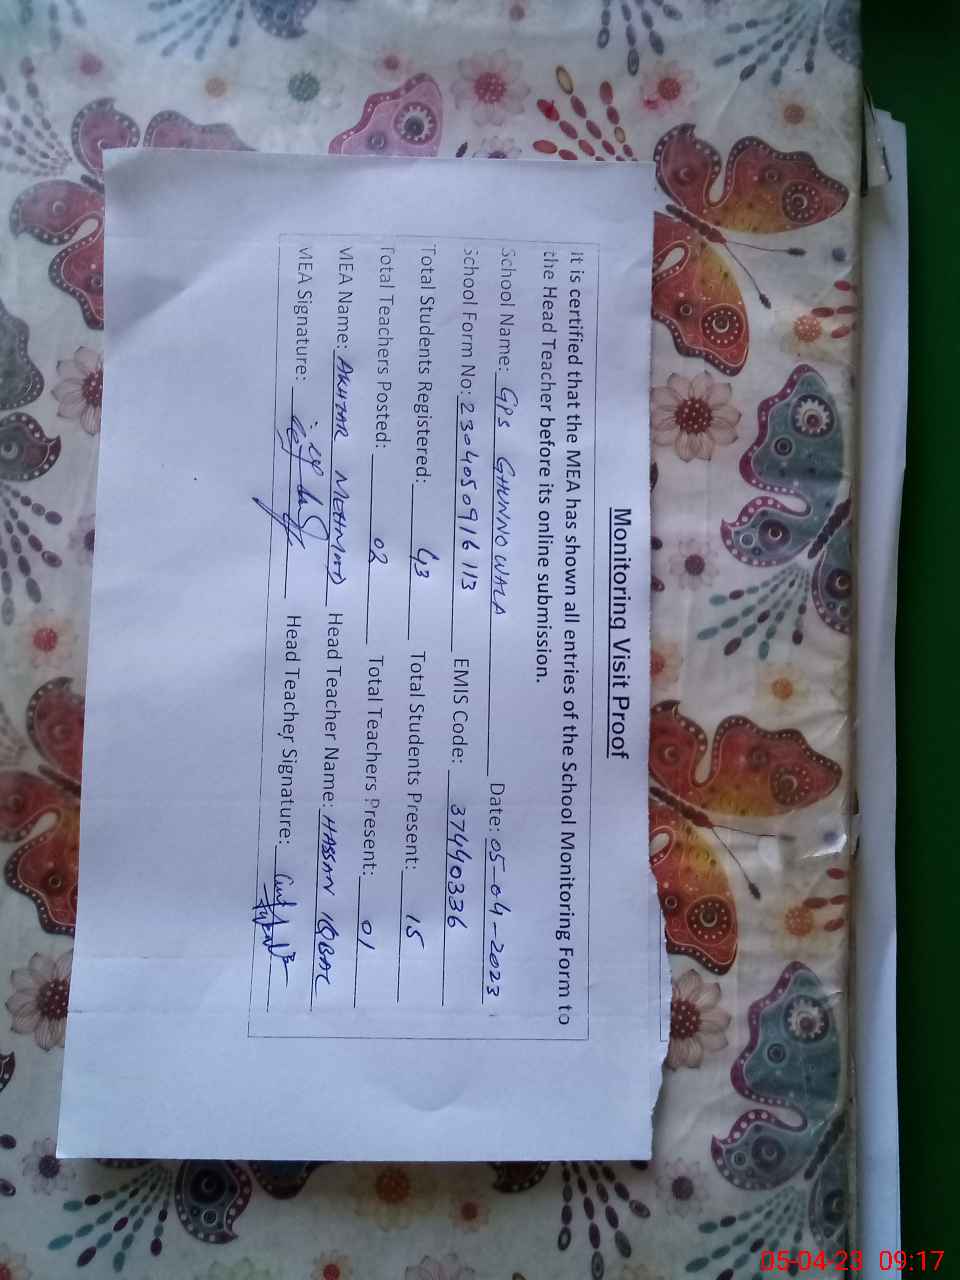 Monitoring Visit Proof
It is certified that the MEA has shown all entries of the School Monitoring Form to
the Head Teacher before its online submission.
School Name: GPS GHUNNOWALA Date: 05-04-2023
School Form No: 2304050916113 EMIS Code: 37440336
Total Students Registered: 43 Total Students Present: 15
Total Teachers Posted: 02 Total Teachers Present: 01
MEA Name: AKHTAR MEHMOOD Head Teacher Name: HASSAN IQBAL
MEA Signature: Head Teacher Signature:
05-04-23 09:17